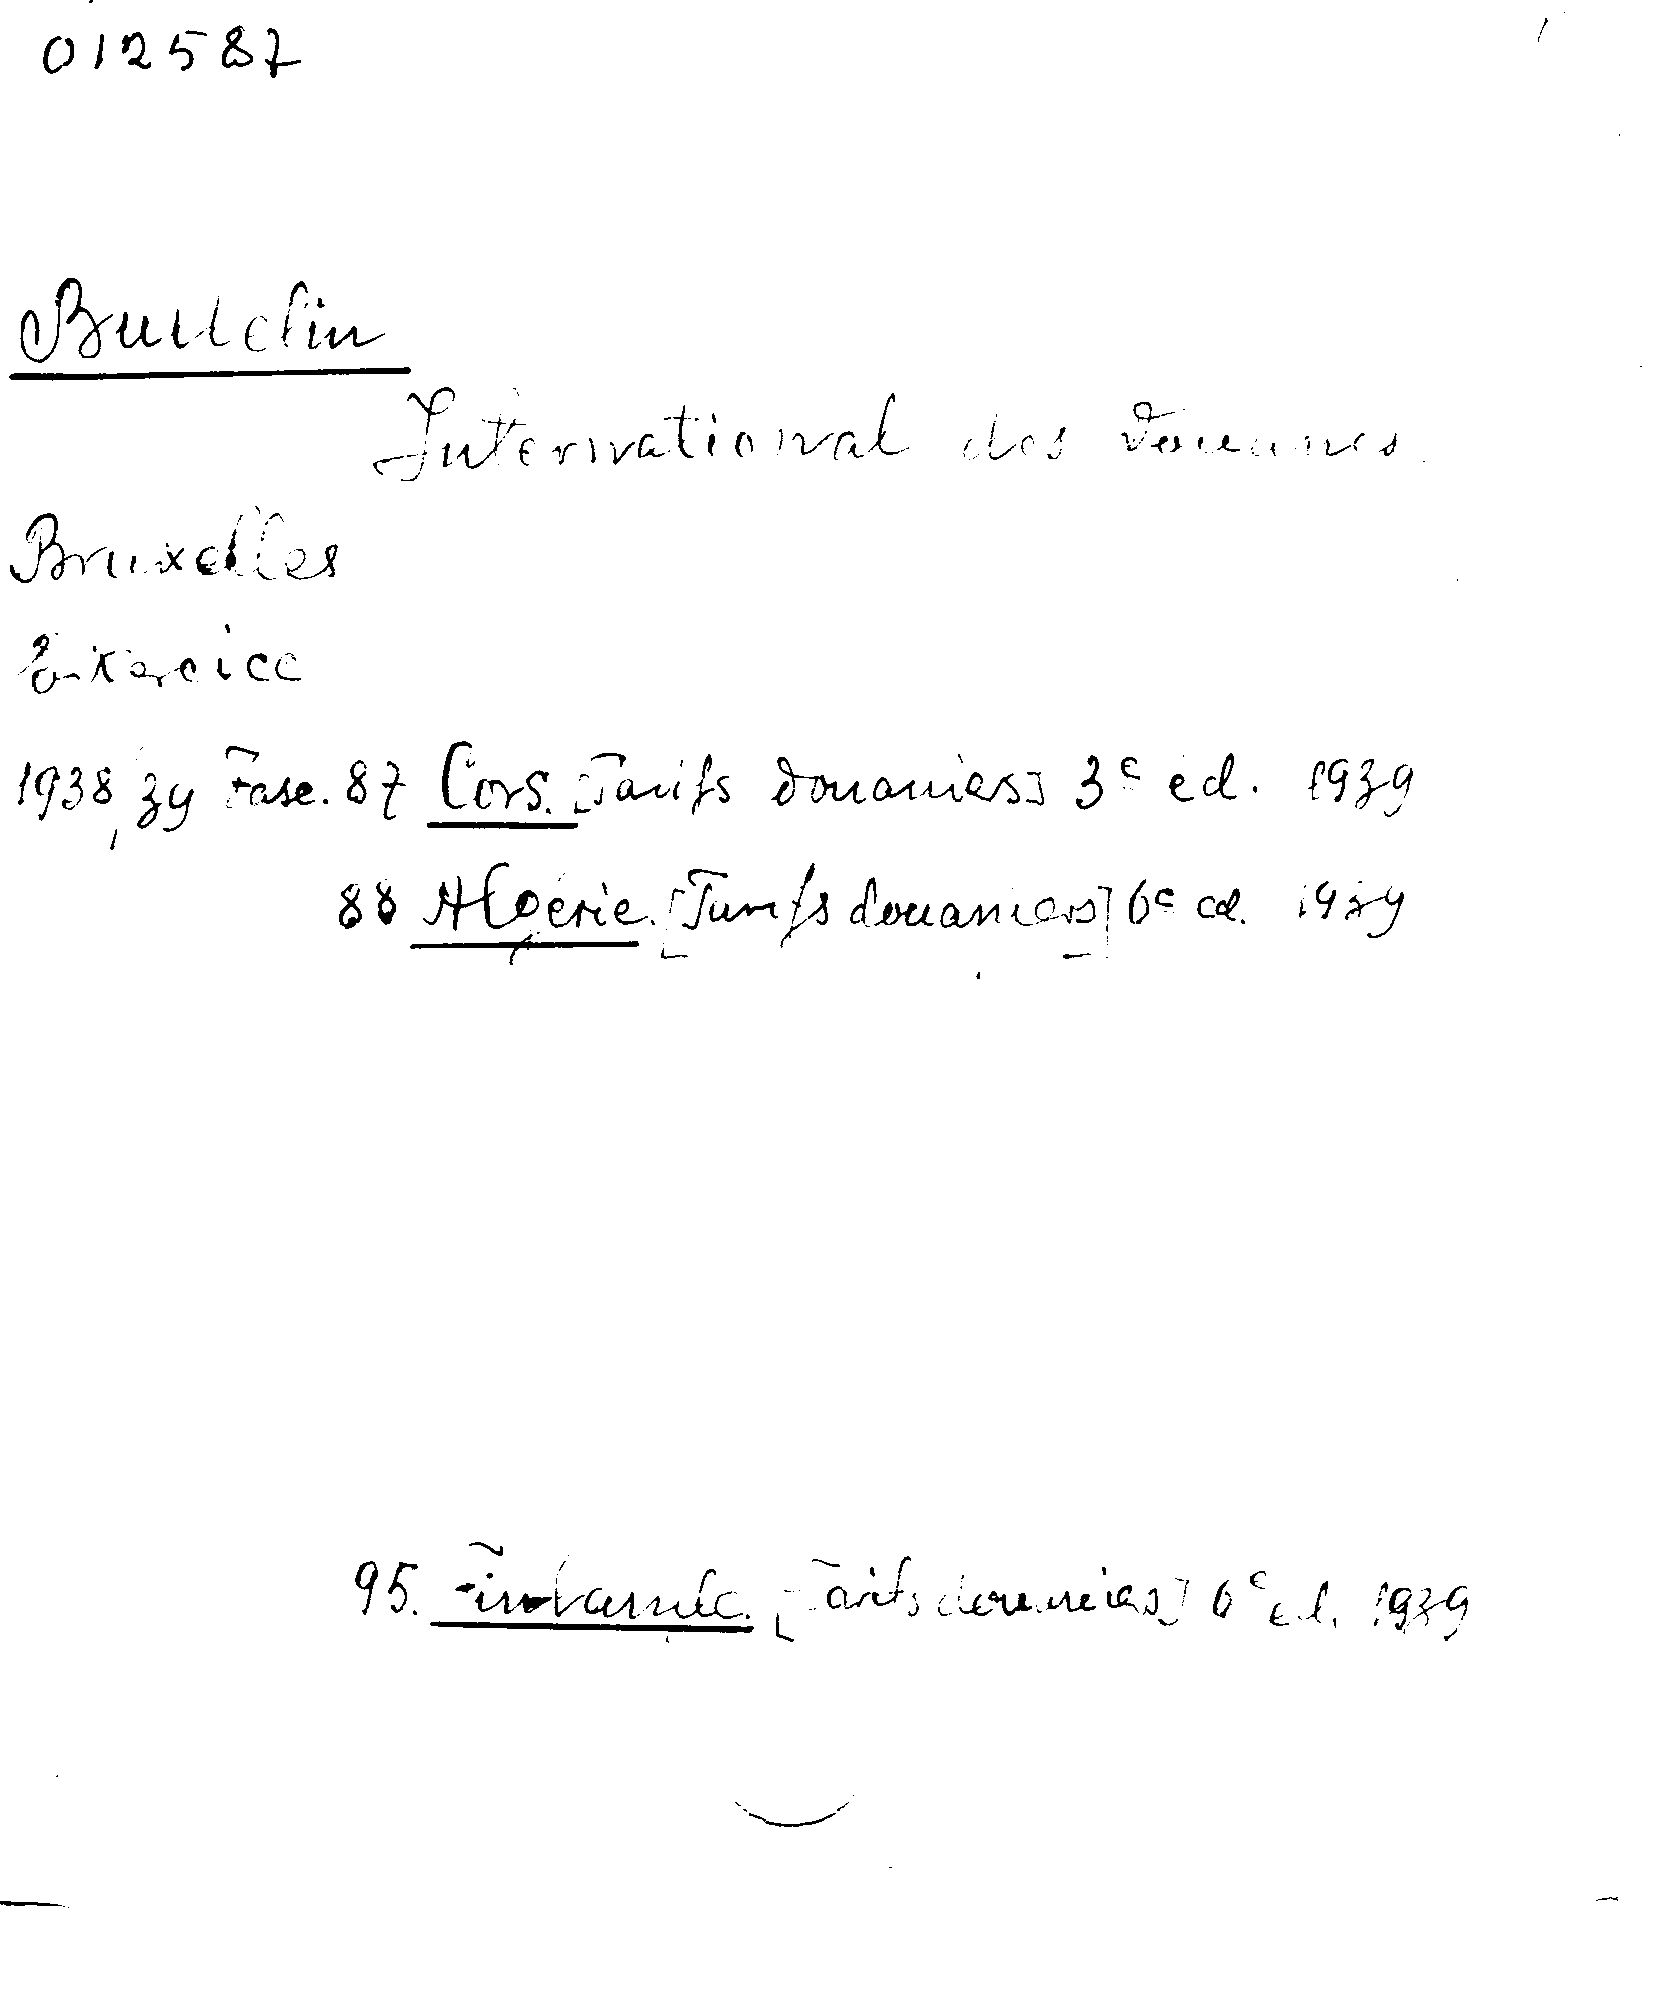 012587
Bulletin
International des Douanes.
Bruxelles
Exercice
1938,39 Fasc. 87 Cors. [Tarifs douaniers] 3e ed. 1939
88 Algérie. [Tarifs douaniers] 6e ed. 1939
95. [Tarifs douaniers] 6e ed. 1939